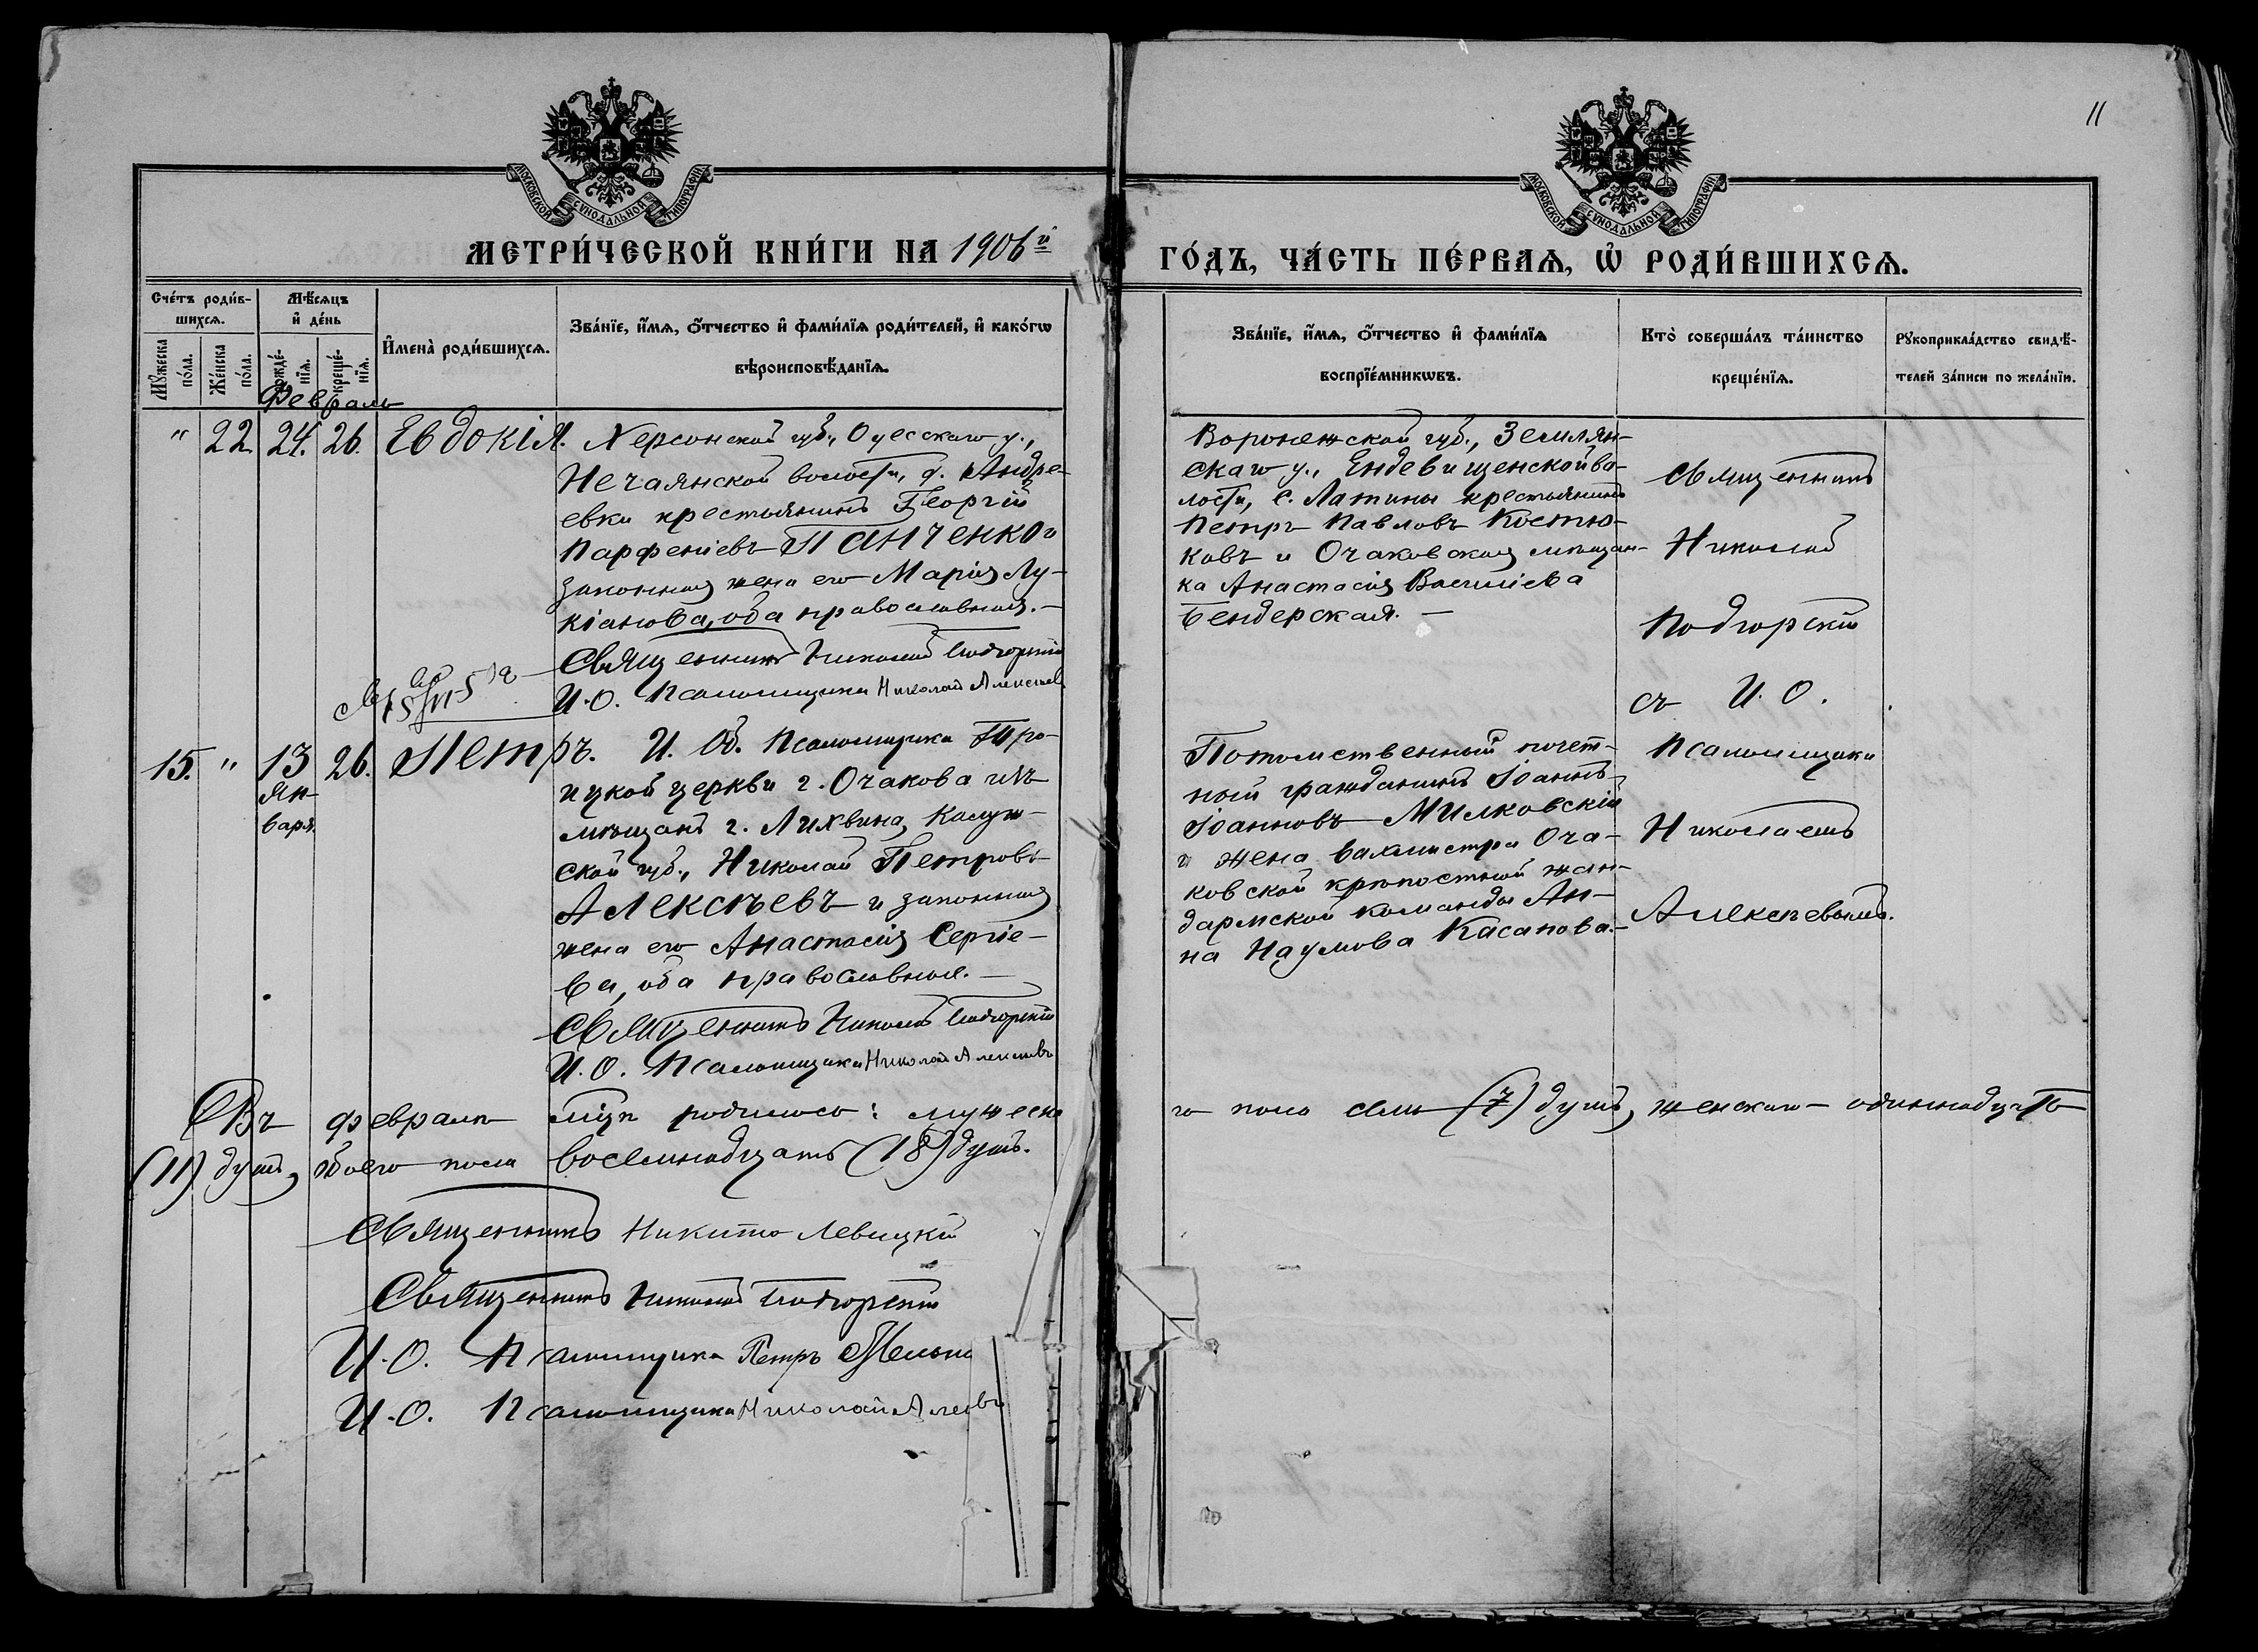 11
МОСКОВСКОЙ СѴНОДАЛЬНОЙ ТИПОГРАФІИ
МОСКОВСКОЙ СѴНОДАЛЬНОЙ ТИПОГРАФІИ
МЕТРИ́ЧЕСКОЙ КНИ́ГИ НА 1906й
ГО́ДЪ, ЧА́СТЬ ПЕ́РВАѦ, Ѡ҆ РОДИ́ВШИХСѦ.
Сче́тъ роди́в-
шихсѧ.
Мꙋ́жеска по́ла.
Же́нска по́ла.
Мѣ́сѧцъ
и҆ де́нь
рожде́-
нїѧ.
креще́-
нїѧ.
И҆мена̀ роди́вшихсѧ.
Зва́нїе, и҆́мѧ, ѻ҆́тчество и҆ фами́лїѧ роди́телей, и҆ како́гѡ
вѣроисповѣ́данїѧ.
Зва́нїе, и҆́мѧ, ѻ҆́тчество и҆ фами́лїѧ
воспрїе́мникѡвъ.
Кто̀ соверша́лъ та́инство
креще́нїѧ.
Рꙋкоприкла́дство свидѣ́-
телей за́писи по жела́нїю.
Февраль
" 22. 24. 26. Евдокія.
Херсонской губ., Одесскаго у.,
Нечаянской волости, д. Андре-
евки крестьянинъ Георгій
Парфеніевъ Панченко и
законная жена его Марія Лу-
кіанова, оба православныя. —
Священникъ Николай Подгорскій
И.О. Псаломщика Николай Алексѣевъ
Воронежской губ., Землян-
скаго у., Ендевищенской во-
лости, с. Латины крестьянинъ
Петръ Павловъ Костю-
ковъ и Очаковская мѣщан-
ка Анастасія Василіева
Бендерская. —
Священникъ
Николай
Подгорскій
съ И. О.
Псаломщика
Николаемъ
Алексѣевымъ.
15. " 13 Ян-
варя. 26. Петръ.
И. Об. Псаломщика Тро-
ицкой церкви г. Очакова изъ
мѣщанъ г. Лихвина, Калуж-
ской губ., Николай Петровъ
Алексѣевъ и законная
жена его Анастасія Сергіе-
ва, оба православныя. —
Священникъ Николай Подгорскій
И.О. Псаломщика Николай Алексѣевъ
Потомственный почет-
ный гражданинъ Іоаннъ
Іоанновъ Милковскій
и жена вахмистра Оча-
ковской крѣпостной жан-
дармской команды Ан-
на Наумова Касапова. —
Въ февралѣ мцѣ родилось: мужеска
го пола семь (7) душъ, женскаго — одиннадцать
(11) душъ, обоего пола восемнадцать (18) душъ.
Священникъ Никита Левицкій
Священникъ Николай Подгорскій
И.О. Псаломщика Петръ
И.О. Псаломщика Николай